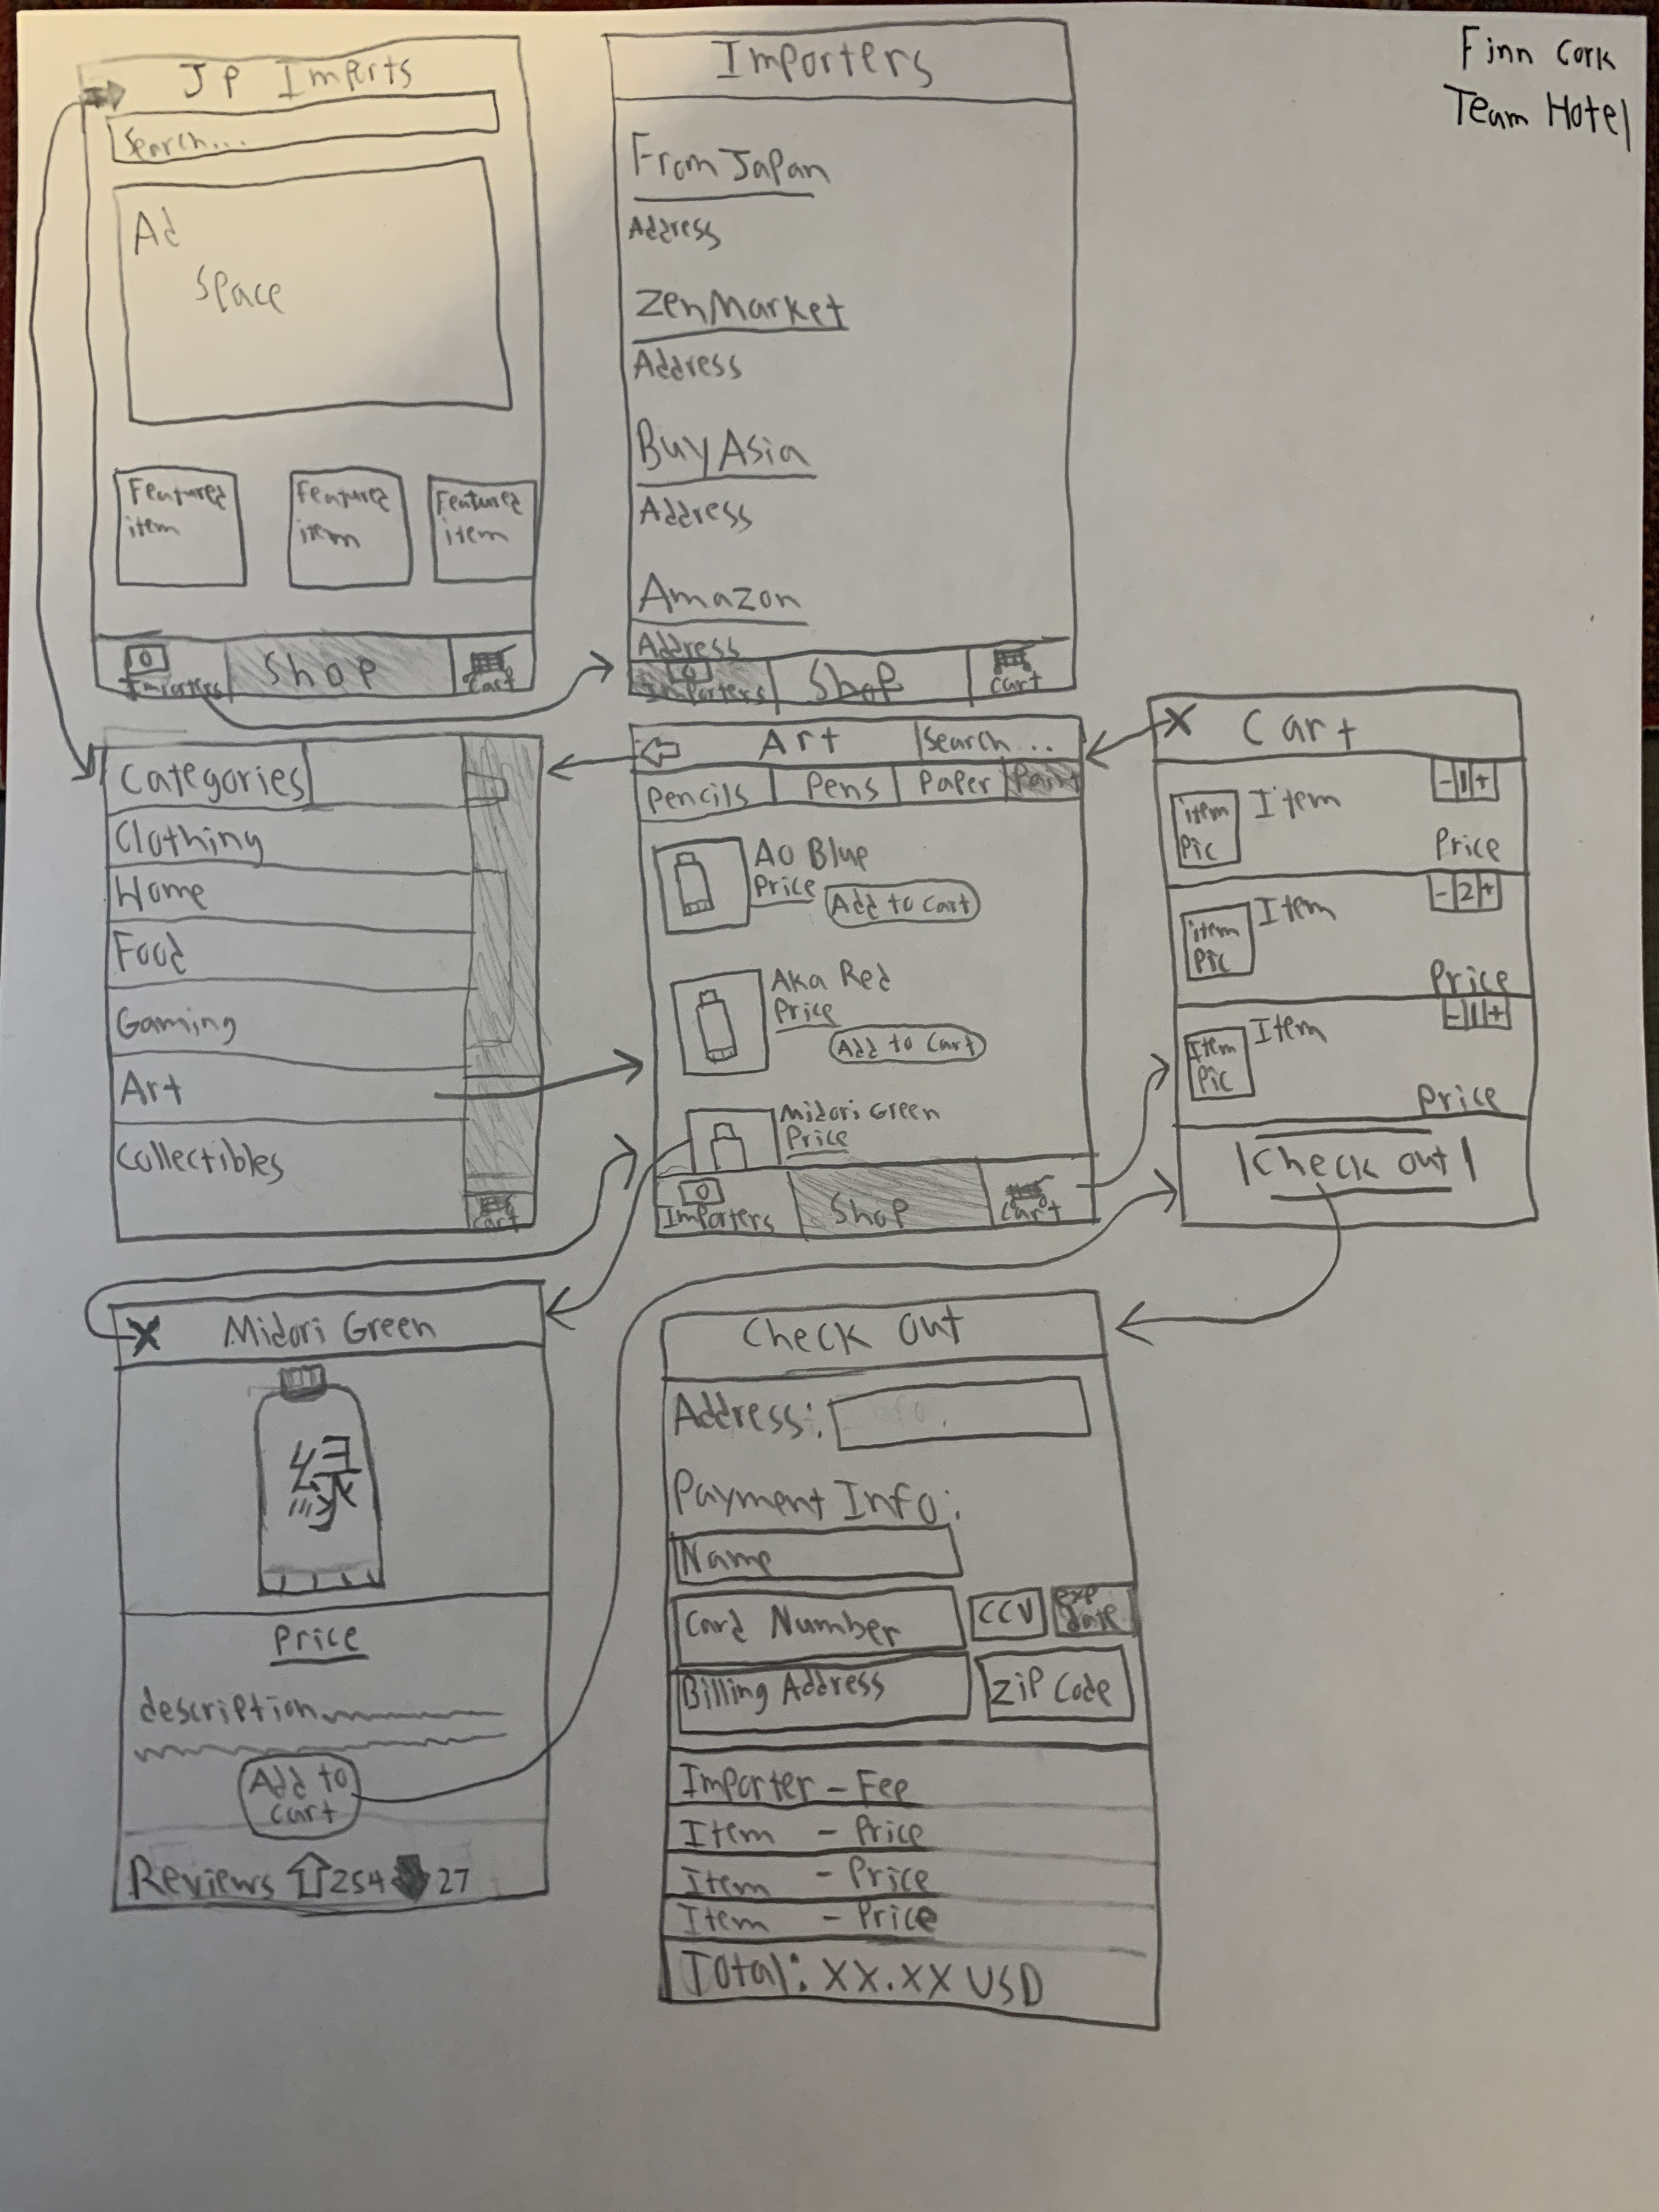 Finn Cork
Team Hotel
JP Imports
Search...
Ad
Space
Featured
item
Featured
item
Featured
item
Importers
Shop
Cart
Importers
From Japan
Address
ZenMarket
Address
Buy Asia
Address
Amazon
Address
Importers
Shop
Cart
Categories
Clothing
Home
Food
Gaming
Art
Collectibles
Cart
Art
Search...
Pencils
Pens
Paper
Paint
Ao Blue
Price
Add to Cart
Aka Red
Price
Add to Cart
Midori Green
Price
Importers
Shop
Cart
X Cart
item
Pic
Item
-1+
Price
item
Pic
Item
-2+
Price
Item
Pic
Item
-1+
Price
Check Out
X Midori Green
緑
Price
description
Add to
Cart
Reviews 254 27
Check Out
Address:
Payment Info:
Name
Card Number
CCV
exp
date
Billing Address
Zip Code
Importer - Fee
Item - Price
Item - Price
Item - Price
Total: XX.XX USD